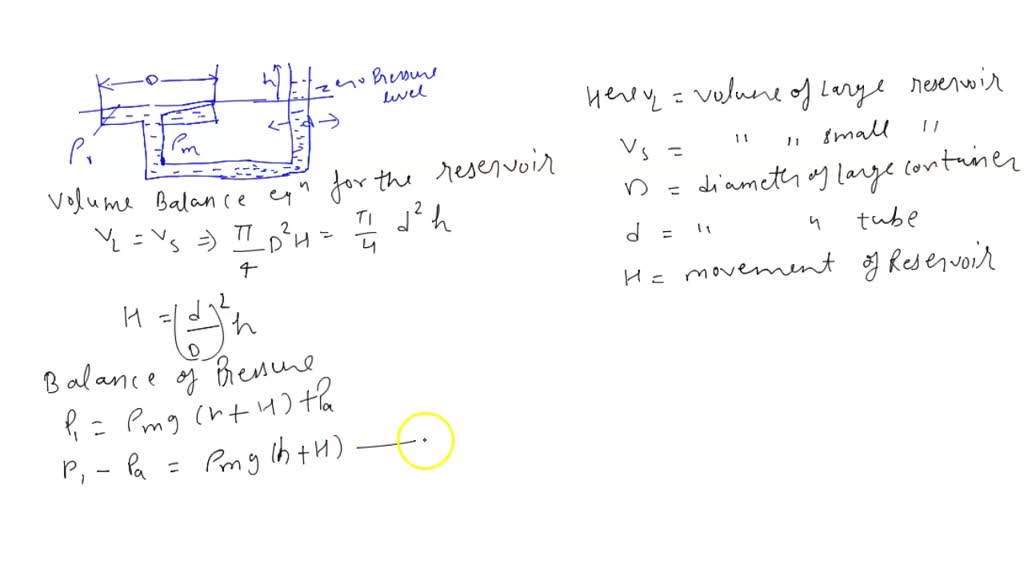 D
h
zero Pressure
level
d
P₁
ρm
Volume Balance eqⁿ for the reservoir
V_L = V_S ⇒ π/4 D²H = π/4 d²h
H = (d/D)² h
Balance of Pressure
P₁ = ρmg (h + H) + Pa
P₁ - Pa = ρmg (h + H) —
Here V_L = Volume of Large reservoir
V_S = " " small "
D = diameter of large container
d = " " tube
H = movement of Reservoir